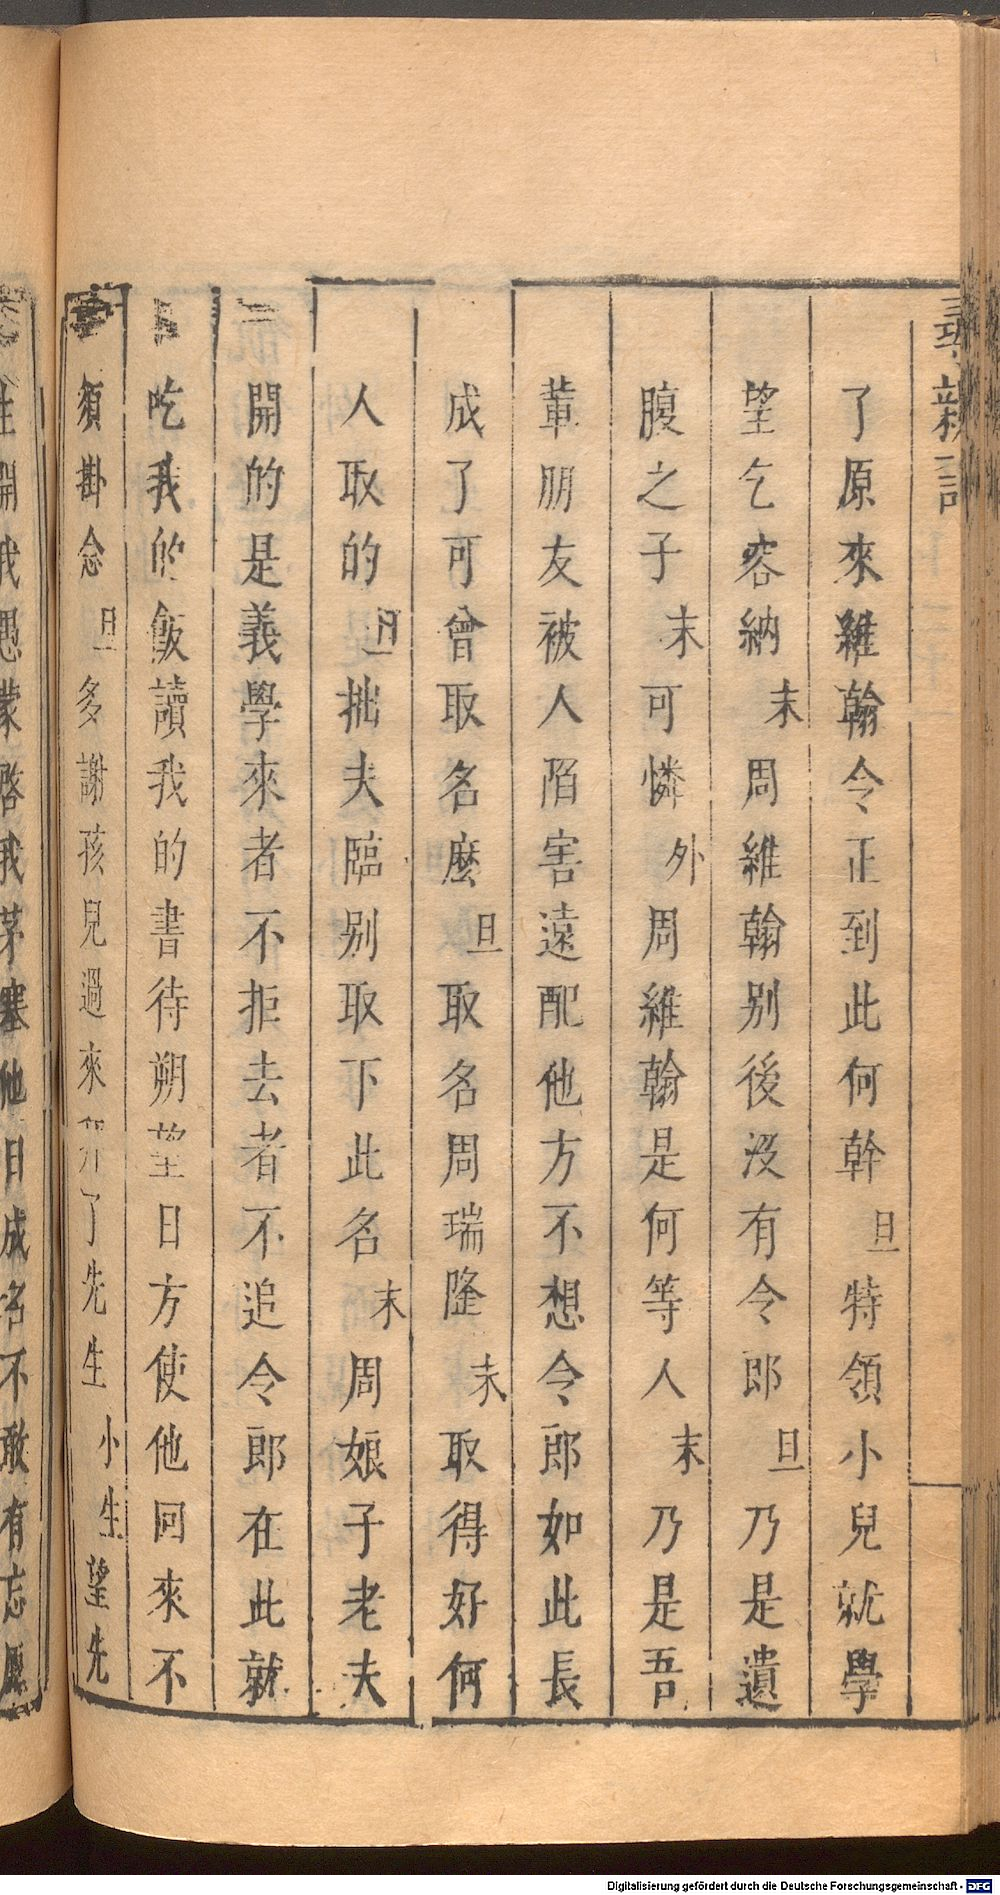 尋親記
了原來維翰令正到此何幹旦特領小兒就學
望乞容納末周維翰别後沒有令郎旦乃是遺
腹之子末可憐外周維翰是何等人末乃是吾
輩朋友被人陷害遠配他方不想令郎如此長
成了可曾取名麽旦取名周瑞隆末取得好何
人取的旦拙夫臨别取下此名末周娘子老夫
開的是義學來者不拒去者不追令郎在此就
吃我的飯讀我的書待朔望日方使他回來不
須掛念旦多謝孩兒過來拜了先生小生望先
生開我愚蒙啓我茅塞他日成名不敢有忘
Digitalisierung gefördert durch die Deutsche Forschungsgemeinschaft - DFG